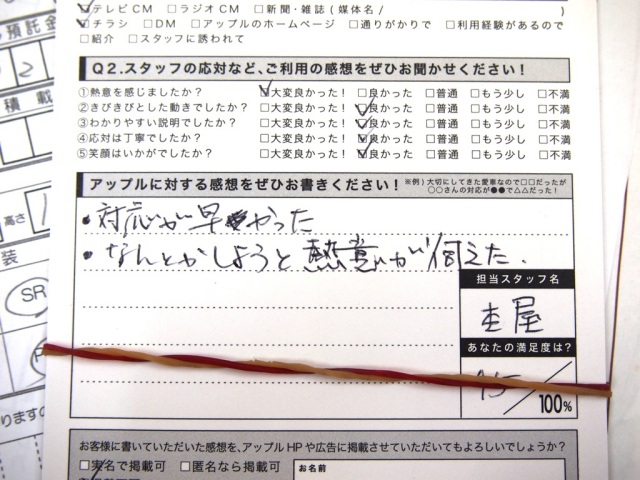 ☑テレビCM □ラジオCM □新聞・雑誌(媒体名/ )
☑チラシ □DM □アップルのホームページ □通りがかりで □利用経験があるので
□紹介 □スタッフに誘われて
預託金
Q2.スタッフの応対など、ご利用の感想をぜひお聞かせください!
①熱意を感じましたか? ☑大変良かった! □良かった □普通 □もう少し □不満
②きびきびとした動きでしたか? □大変良かった! ☑良かった □普通 □もう少し □不満
③わかりやすい説明でしたか? □大変良かった! ☑良かった □普通 □もう少し □不満
④応対は丁寧でしたか? □大変良かった! ☑良かった □普通 □もう少し □不満
⑤笑顔はいかがでしたか? □大変良かった! ☑良かった □普通 □もう少し □不満
積載
アップルに対する感想をぜひお書きください! ※例)大切にしてきた愛車なので□□だったが
○○さんの対応が●●で△△だった!
高さ
・対応が早かった
・なんとかしようと熱意が伺えた.
装
SR
担当スタッフ名
圭屋
あなたの満足度は?
95/100%
りますの
お客様に書いていただいた感想を、アップルHPや広告に掲載させていただいてもよろしいでしょうか?
☑実名で掲載可 □匿名なら掲載可
お名前